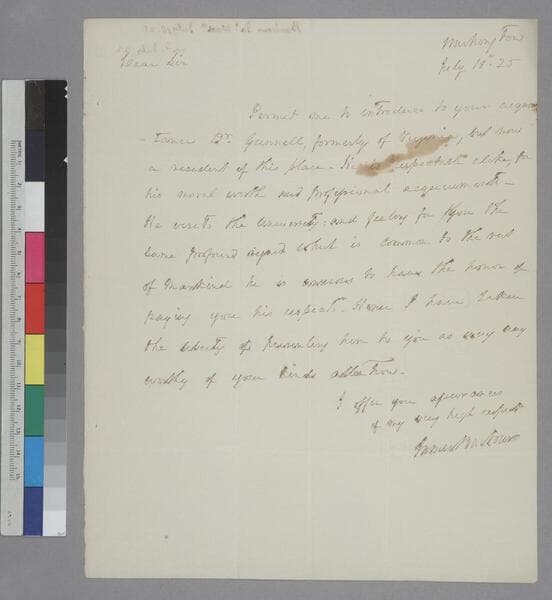 Washington
July 18th 25
Dear Sir
Permit me to introduce to your acquain
-tance Dr. Gunnell, formerly of Virginia, but now
a resident of this place - He is respected alike for
his moral worth and professional acquirements -
He visits the University: and feeling for you the
same profound regard which is common to the rest
of mankind he is anxious to have the honor of
paying you his respects. Hence I have taken
the liberty of presenting him to you as every way
worthy of your kind attention.
I offer you assurances
of my very high respect
James Barbour